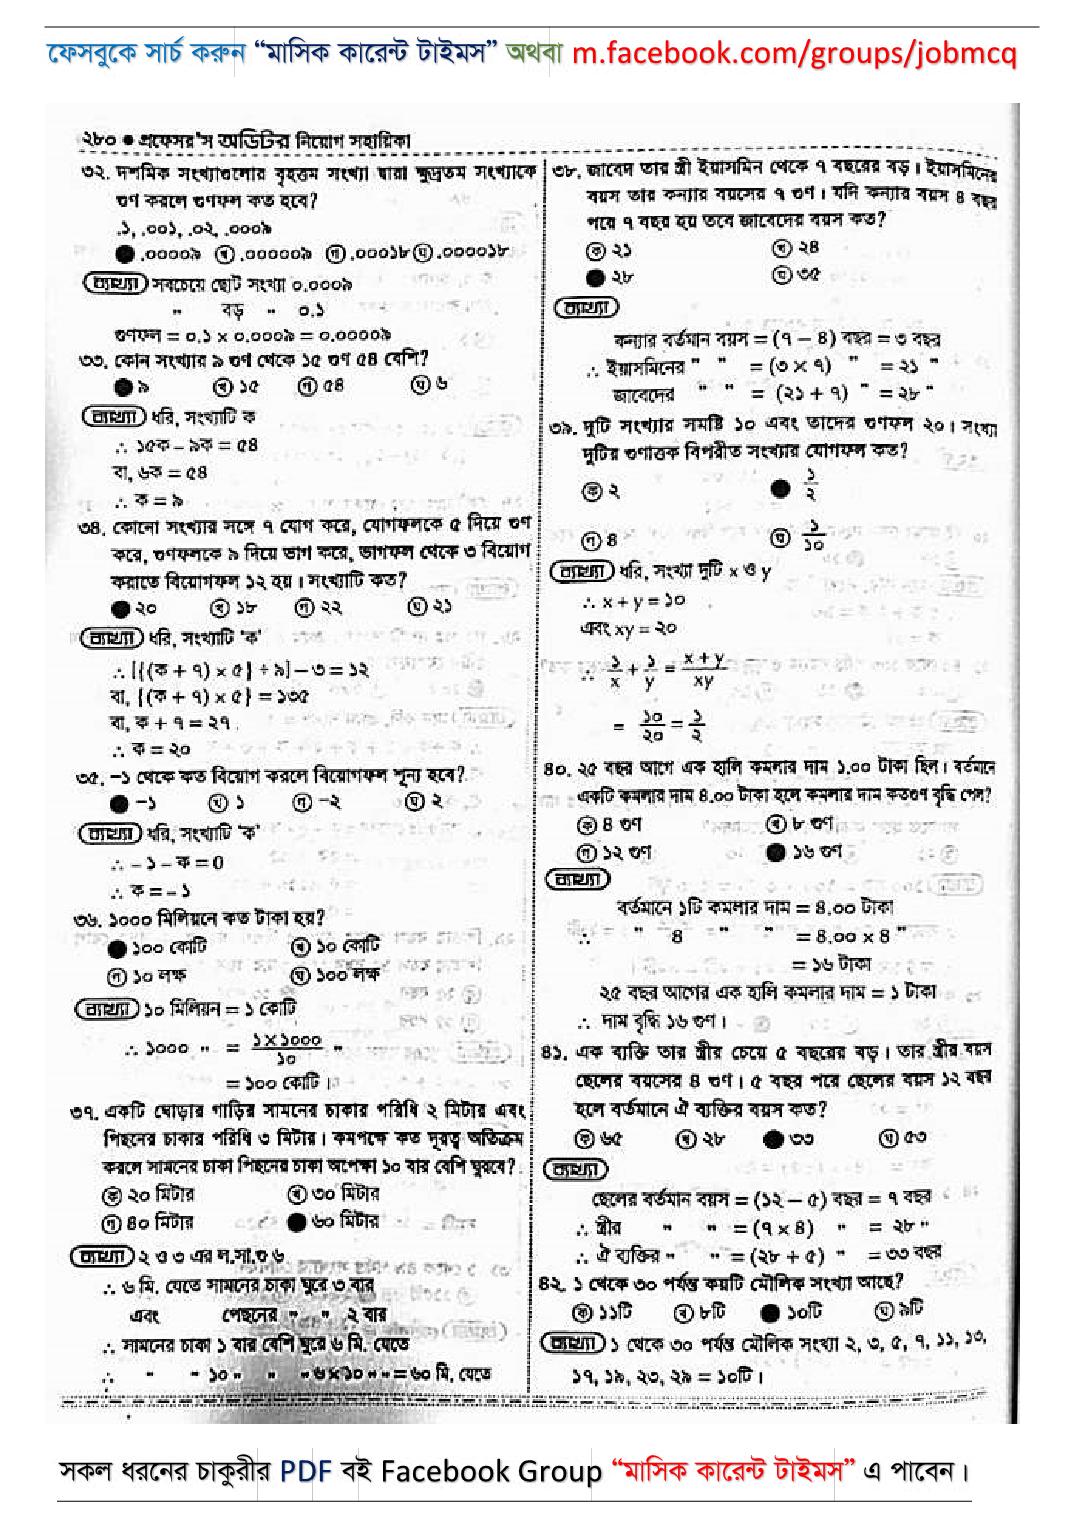 ফেসবুকে সার্চ করুন “মাসিক কারেন্ট টাইমস” অথবা m.facebook.com/groups/jobmcq
২৮০ ● প্রফেসর'স অডিটর নিয়োগ সহায়িকা
৩২. দশমিক সংখ্যাগুলোর বৃহত্তম সংখ্যা দ্বারা ক্ষুদ্রতম সংখ্যাকে
গুণ করলে গুণফল কত হবে?
.১, .০০১, .০২, .০০০৯
● .০০০০৯ (খ) .০০০০০৯ (গ) .০০০১৮ (ঘ) .০০০০১৮
ব্যাখ্যা সবচেয়ে ছোট সংখ্যা ০.০০০৯
" বড় " ০.১
গুণফল = ০.১ x ০.০০০৯ = ০.০০০০৯
৩৩. কোন সংখ্যার ৯ গুণ থেকে ১৫ গুণ ৫৪ বেশি?
● ৯ (খ) ১৫ (গ) ৫৪ (ঘ) ৬
ব্যাখ্যা ধরি, সংখ্যাটি ক
∴ ১৫ক – ৯ক = ৫৪
বা, ৬ক = ৫৪
∴ ক = ৯
৩৪. কোনো সংখ্যার সঙ্গে ৭ যোগ করে, যোগফলকে ৫ দিয়ে গুণ
করে, গুণফলকে ৯ দিয়ে ভাগ করে, ভাগফল থেকে ৩ বিয়োগ
করাতে বিয়োগফল ১২ হয়। সংখ্যাটি কত?
● ২০ (খ) ১৮ (গ) ২২ (ঘ) ২১
ব্যাখ্যা ধরি, সংখ্যাটি 'ক'
∴ [{(ক + ৭) x ৫} ÷ ৯] – ৩ = ১২
বা, {(ক + ৭) x ৫} = ১৩৫
বা, ক + ৭ = ২৭
∴ ক = ২০
৩৫. –১ থেকে কত বিয়োগ করলে বিয়োগফল শূন্য হবে?
● –১ (খ) ১ (গ) –২ (ঘ) ২
ব্যাখ্যা ধরি, সংখ্যাটি 'ক'
∴ – ১ – ক = 0
∴ ক = – ১
৩৬. ১০০০ মিলিয়নে কত টাকা হয়?
● ১০০ কোটি (খ) ১০ কোটি
(গ) ১০ লক্ষ (ঘ) ১০০ লক্ষ
ব্যাখ্যা ১০ মিলিয়ন = ১ কোটি
∴ ১০০০ " = ১X১০০০/১০ "
= ১০০ কোটি।
৩৭. একটি ঘোড়ার গাড়ির সামনের চাকার পরিধি ২ মিটার এবং
পিছনের চাকার পরিধি ৩ মিটার। কমপক্ষে কত দূরত্ব অতিক্রম
করলে সামনের চাকা পিছনের চাকা অপেক্ষা ১০ বার বেশি ঘুরবে?
(ক) ২০ মিটার (খ) ৩০ মিটার
(গ) ৪০ মিটার ● ৬০ মিটার
ব্যাখ্যা ২ ও ৩ এর ল.সা.গু ৬
∴ ৬ মি. যেতে সামনের চাকা ঘুরে ৩ বার
এবং পেছনের " " ২ বার
∴ সামনের চাকা ১ বার বেশি ঘুরে ৬ মি. যেতে
∴ " " ১০ " " " ৬ x ১০ " " = ৬০ মি. যেতে
৩৮. জাবেদ তার স্ত্রী ইয়াসমিন থেকে ৭ বছরের বড়। ইয়াসমিনের
বয়স তার কন্যার বয়সের ৭ গুণ। যদি কন্যার বয়স ৪ বছর
পরে ৭ বছর হয় তবে জাবেদের বয়স কত?
(ক) ২১ (খ) ২৪
● ২৮ (ঘ) ৩৫
ব্যাখ্যা
কন্যার বর্তমান বয়স = (৭ – ৪) বছর = ৩ বছর
∴ ইয়াসমিনের " " = (৩ x ৭) " = ২১ "
জাবেদের " " = (২১ + ৭) " = ২৮ "
৩৯. দুটি সংখ্যার সমষ্টি ১০ এবং তাদের গুণফল ২০। সংখ্যা
দুটির গুণাত্মক বিপরীত সংখ্যার যোগফল কত?
(ক) ২ ● ১/২
(গ) ৪ (ঘ) ১/১০
ব্যাখ্যা ধরি, সংখ্যা দুটি x ও y
∴ x + y = ১০
এবং xy = ২০
∴ ১/x + ১/y = x + y/xy
= ১০/২০ = ১/২
৪০. ২৫ বছর আগে এক হালি কমলার দাম ১.০০ টাকা ছিল। বর্তমানে
একটি কমলার দাম ৪.০০ টাকা হলে কমলার দাম কতগুণ বৃদ্ধি পেল?
(ক) ৪ গুণ (খ) ৮ গুণ
(গ) ১২ গুণ ● ১৬ গুণ
ব্যাখ্যা
বর্তমানে ১টি কমলার দাম = ৪.০০ টাকা
∴ " ৪ " " = ৪.০০ x ৪ "
= ১৬ টাকা
২৫ বছর আগের এক হালি কমলার দাম = ১ টাকা
∴ দাম বৃদ্ধি ১৬ গুণ।
৪১. এক ব্যক্তি তার স্ত্রীর চেয়ে ৫ বছরের বড়। তার স্ত্রীর বয়স
ছেলের বয়সের ৪ গুণ। ৫ বছর পরে ছেলের বয়স ১২ বছর
হলে বর্তমানে ঐ ব্যক্তির বয়স কত?
(ক) ৬৫ (খ) ২৮ ● ৩৩ (ঘ) ৫৩
ব্যাখ্যা
ছেলের বর্তমান বয়স = (১২ – ৫) বছর = ৭ বছর
∴ স্ত্রীর " " = (৭ x ৪) " = ২৮ "
∴ ঐ ব্যক্তির " " = (২৮ + ৫) " = ৩৩ বছর
৪২. ১ থেকে ৩০ পর্যন্ত কয়টি মৌলিক সংখ্যা আছে?
(ক) ১১টি (খ) ৮টি ● ১০টি (ঘ) ৯টি
ব্যাখ্যা ১ থেকে ৩০ পর্যন্ত মৌলিক সংখ্যা ২, ৩, ৫, ৭, ১১, ১৩,
১৭, ১৯, ২৩, ২৯ = ১০টি।
সকল ধরনের চাকুরীর PDF বই Facebook Group “মাসিক কারেন্ট টাইমস” এ পাবেন।